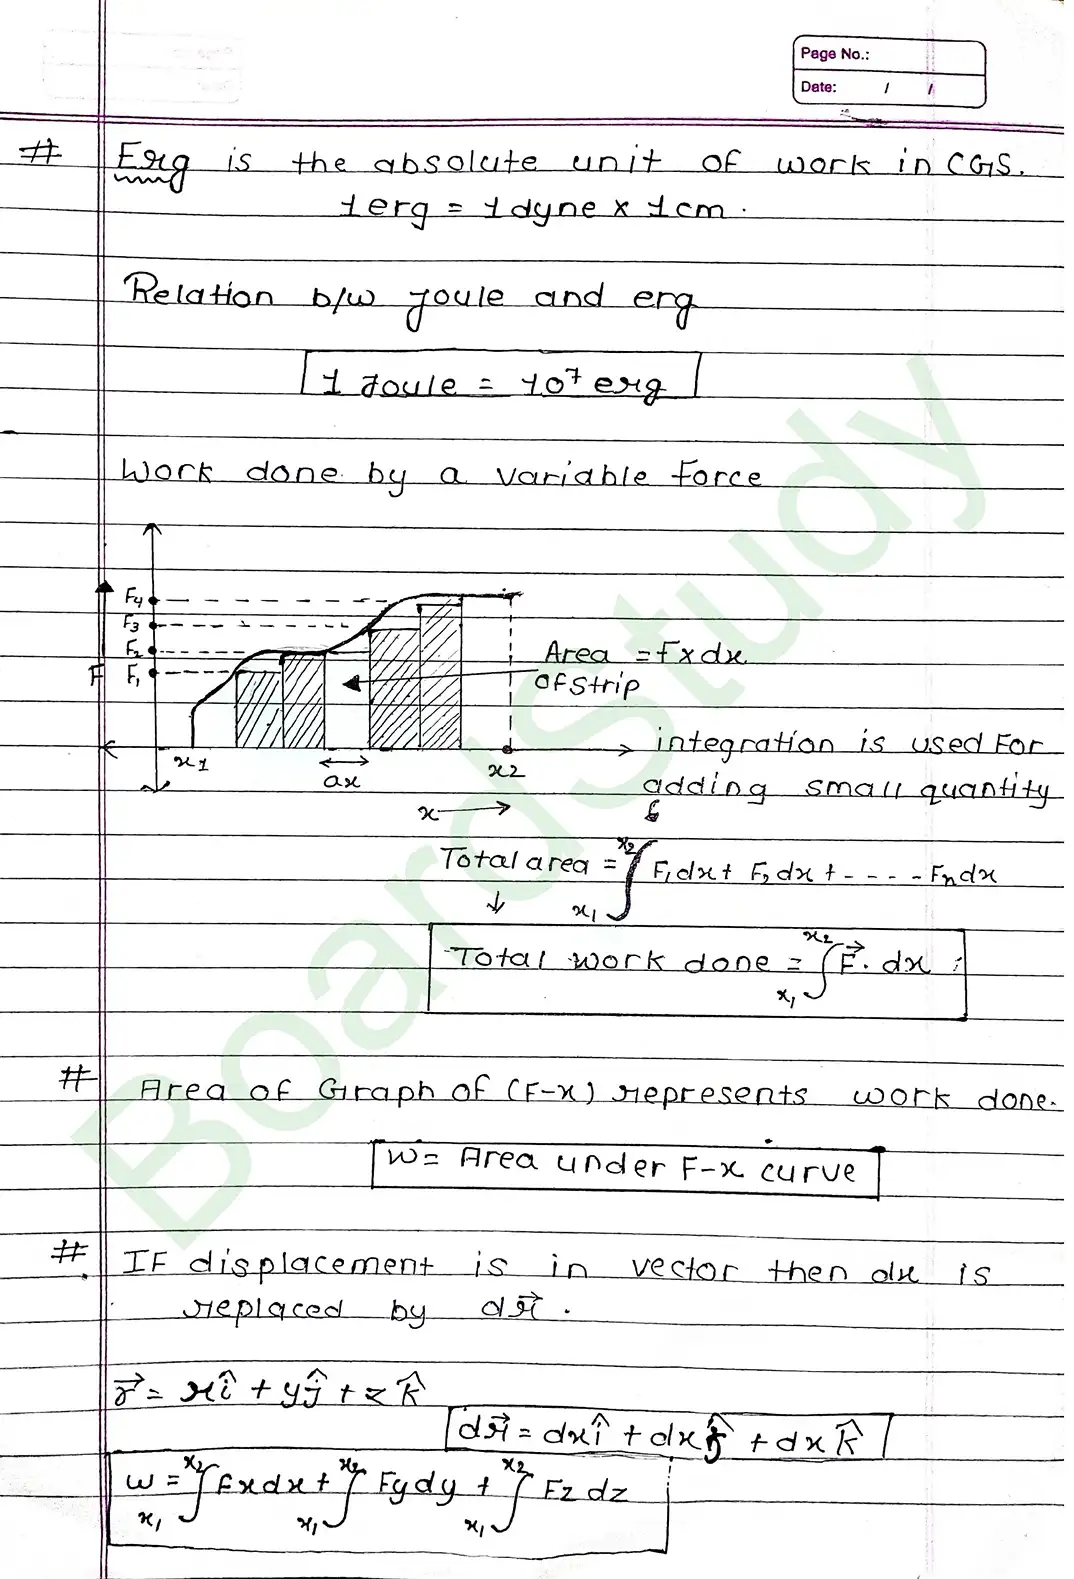 Page No.:
Date: / /
# Erg is the absolute unit of work in CGS.
1 erg = 1 dyne x 1 cm.
Relation b/w Joule and erg
1 Joule = 10⁷ erg
Work done by a variable Force
F₄
F₃
F₂
F F₁
Area = F x dx
of strip
x1
ax
x2
integration is used For
adding small quantity
x
Total area = ∫ₓ₁ˣ² F₁dx + F₂dx + - - - - Fₙdx
Total work done = ∫ₓ₁ˣ² F⃗. dx
# Area of Graph of (F-x) represents work done.
W = Area under F-x curve
# IF displacement is in vector then dx is
replaced by dr⃗.
r⃗ = xî + yĵ + zk̂
dr⃗ = dxî + dxĵ + dxk̂
w = ∫ₓ₁ˣ² Fxdx + ∫ₓ₁ˣ² Fydy + ∫ₓ₁ˣ² Fzdz
BoardStudy